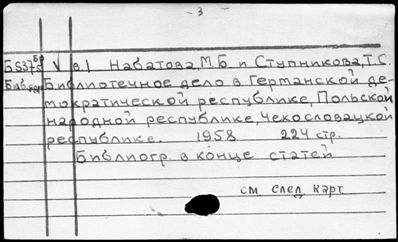 - 3
Б5375 бр V в.1 Набатова, М.Б. и Ступникова, Т.С.
Библиотечное дело в Германской де-
мократической республике, Польской
народной республике, Чехословацкой
республике. 1958 224 стр.
Библиогр. в конце статей
см. след. карт.